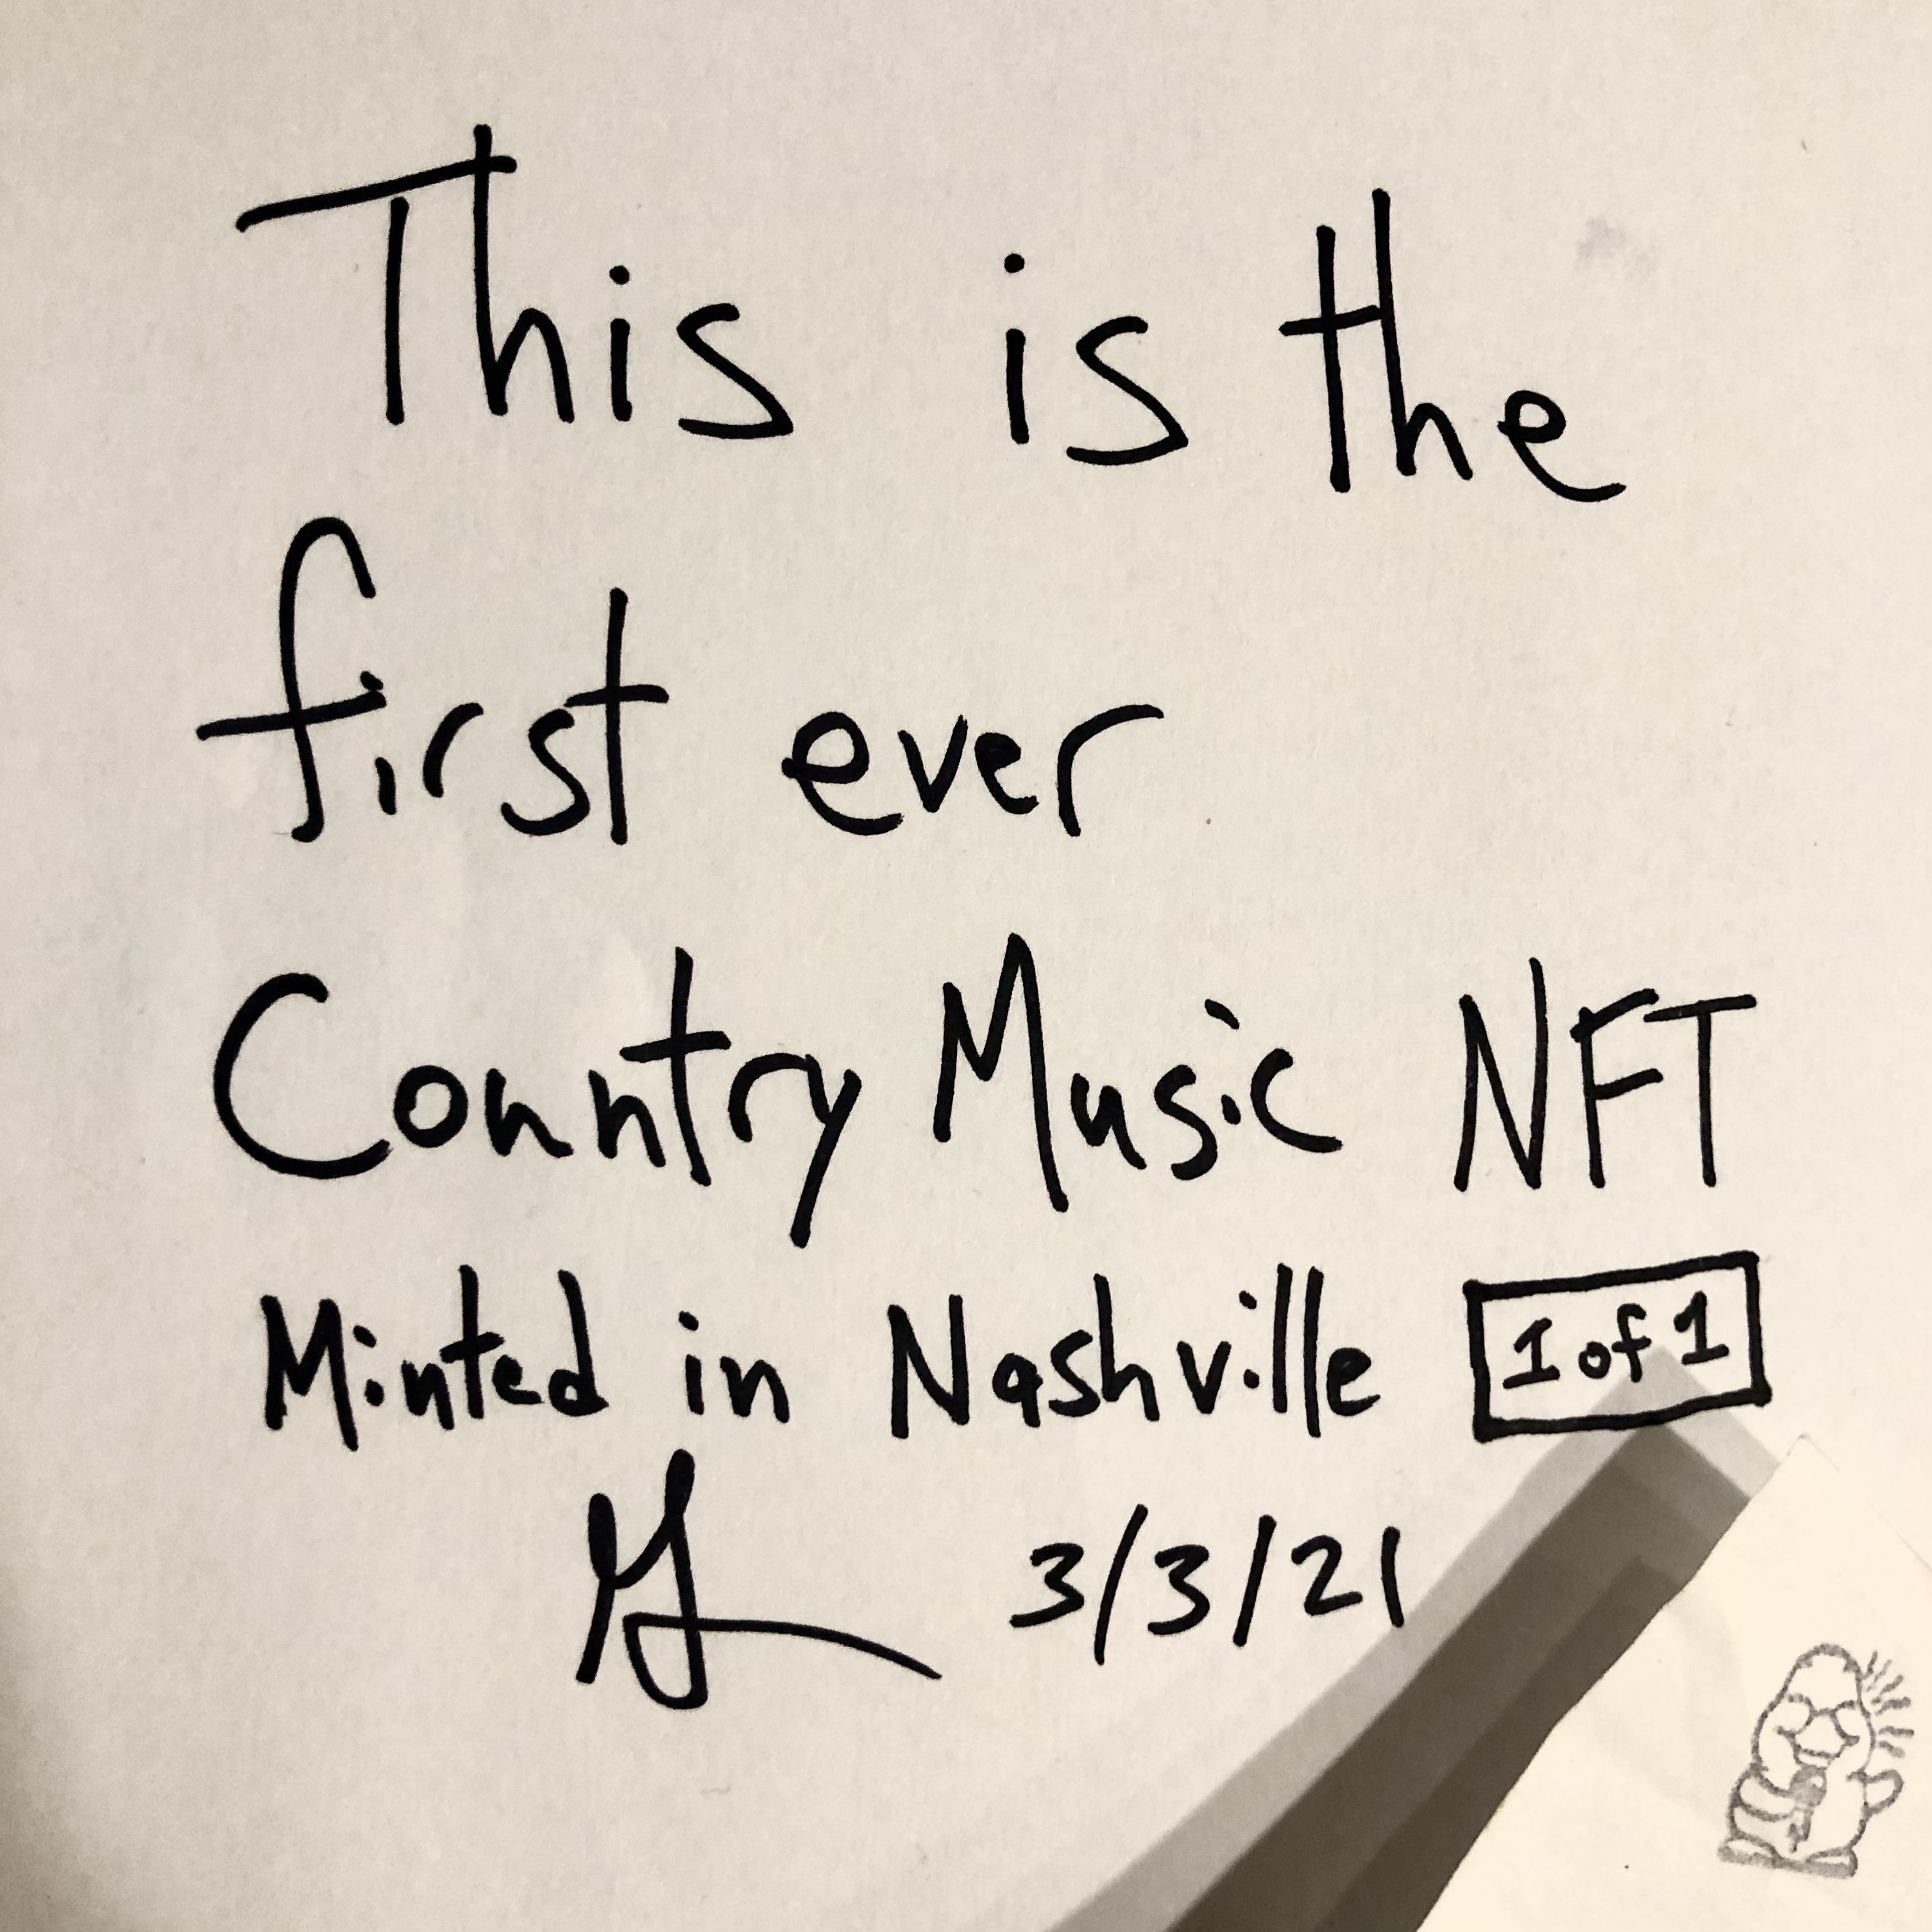 This is the
first ever
Country Music NFT
Minted in Nashville 1 of 1
3/3/21